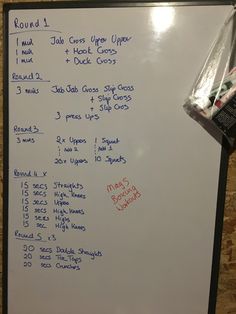 Round 1
1 min Jab Cross Upper Upper
1 min + Hook Cross
1 min + Duck Cross
Round 2
3 mins Jab Jab Cross Slip Cross
+ Slip Cross
+ Slip Cros
3 press ups
Round 3
3 mins 2x Uppers 1 Squat
↓ Add 2 ↓ Add 1
20x Uppers 10 Squats
Round 4 x
15 secs Straights
15 secs High Knees
15 secs Uppers
15 secs High Knees
15 secs Hooks
15 sec High Knees
Mags
Boxing
Workouts
Round 5 x3
20 secs Double Straights
20 secs Toe Taps
20 secs Crunches